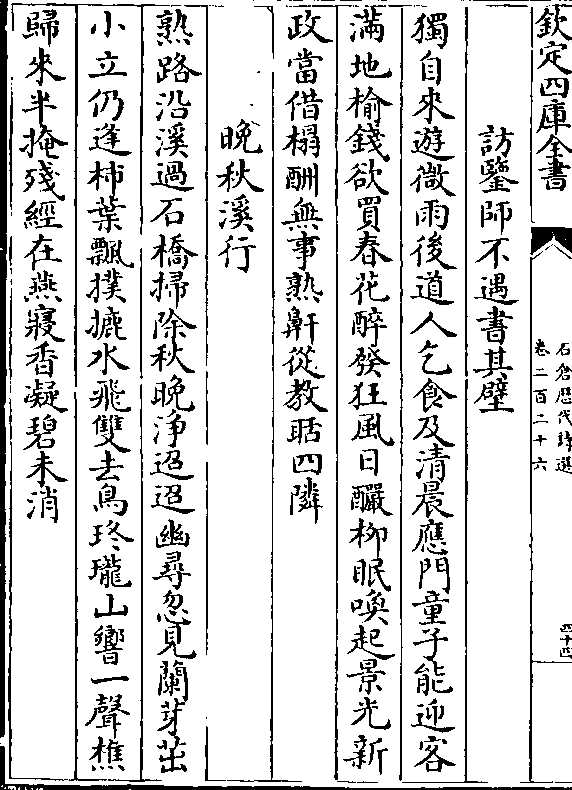 欽定四庫全書
石倉歴代詩選
卷二百二十六
四十四
訪鑒師不遇書其壁
獨自來遊微雨後道人乞食及清晨應門童子能迎客
滿地榆錢欲買春花醉發狂風日釅柳眠喚起景光新
政當借榻酬無事熟鼾從教聒四隣
晚秋溪行
熟路沿溪過石橋掃除秋晚淨迢迢幽尋忽見蘭芽茁
小立仍逢柿葉飄撲摝水飛雙去鳥玲瓏山響一聲樵
歸來半掩殘經在燕寢香凝碧未消